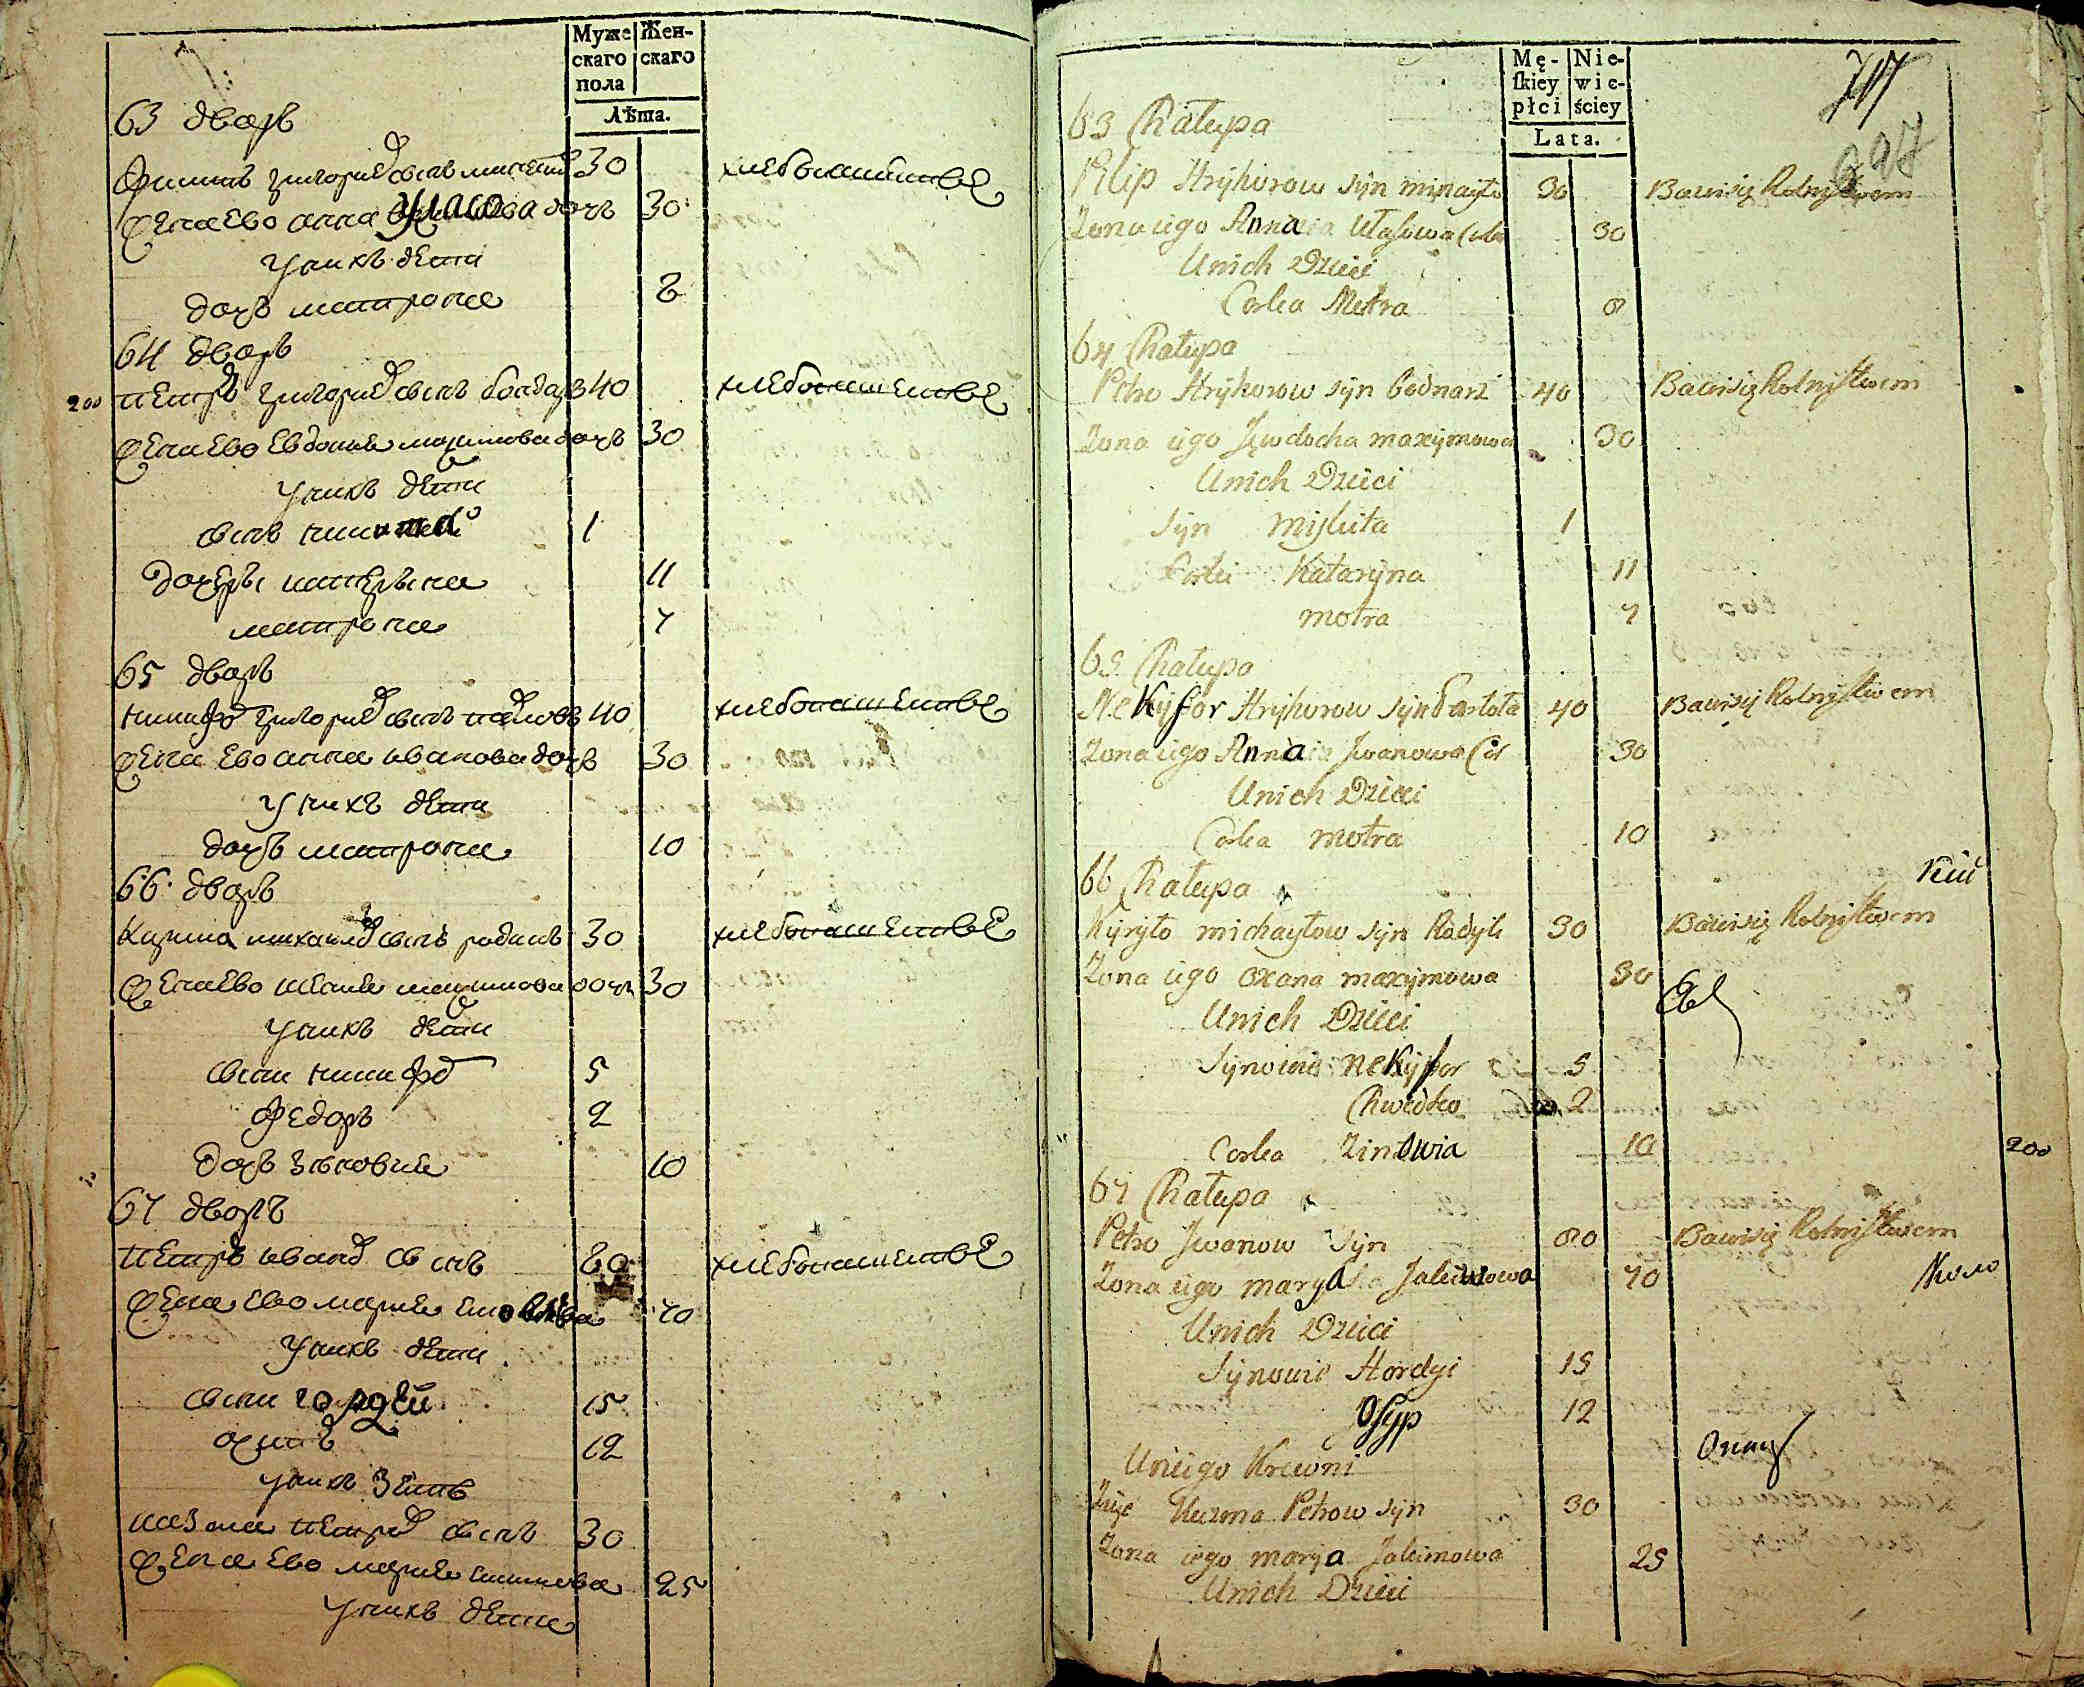 Муже скаго пола
Жен- скаго
Лѣта.
63 дворъ
Филипъ григоріевъ сынъ 30 хлебопашествѣ
Жена ево анна Уласова дочь 30
У нихъ дети
дочь матрона 8
64 дворъ
200 Петръ григоріевъ сынъ боднаръ 40 хлебопашествѣ
Жена ево Евдокия максимова дочь 30
У нихъ дети
сынъ никита 1
Дочери катерына 11
матрона 7
65 дворъ
никифоръ григоріевъ сынъ 40 хлебопашествѣ
Жена ево анна иванова дочь 30
У нихъ дети
дочь матрона 10
66 дворъ
Кирила михайловъ сынъ 30 хлебопашествѣ
Жена ево максимова дочь 30
У нихъ дети
сыни никифоръ 5
Федоръ 2
Дочь Зиновия 10
67 дворъ
Петръ ивановъ сынъ 80 хлебопашествѣ
Жена ево мария 70
У нихъ дети
сыни гордѣй 15
осипъ 12
У нихъ Зять
козма петровъ сынъ 30
Жена ево мария 25
У нихъ дети
Mę- skiey płci
Nie- wie- ściey
Lata.
63 Chałupa
Pilip Hryhorow syn 30 Bawisię Rolnistwem
Zona iego Anna Ułasowa 30
Unich Dzieci
Corka Motra 8
64 Chałupa
Petro Hryhorow syn bodnarz 40 Bawisię Rolnistwem
Zona iego Jewdocha maxymowa 30
Unich Dzieci
Syn Mikita 1
Corki Kataryna 11
motra 7
65 Chałupa
Nekyfor Hryhorow syn 40 Bawisię Rolnistwem
Zona iego Anna Jwanowa 30
Unich Dzieci
Corka motra 10
66 Chałupa
Kyryło michayłow syn 30 Bawisię Rolnistwem
Zona iego oxana maxymowa 30
Unich Dzieci
Synowie Nekyfor 5
Chwedko 2
Corka Zinowia 10
200
67 Chałupa
Petro Jwanow Syn 80 Bawisię Rolnistwem
Zona iego marya 70
Unich Dzieci
Synowie Hordyi 15
Osyp 12
Uniego Krewni
Zięc Kuzma Petrow syn 30
Zona iego marya Jakimowa 25
Unich Dzieci